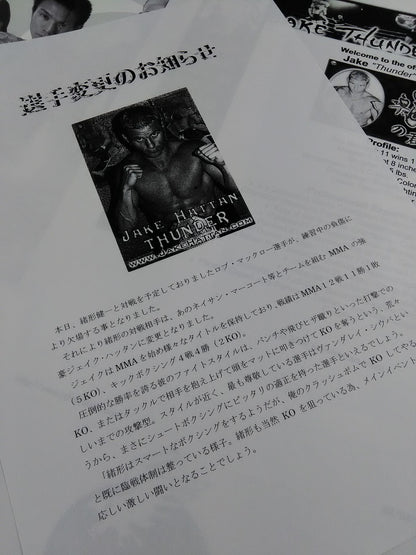 JAKE THUNDER
Welcome to the of
Jake "Thunder"
Profile:
11 wins 1
選手変更のお知らせ
JAKE HATTAN
THUNDER
WWW.JAKEHATTAN.COM
本日、緒形健一と対戦を予定しておりましたロブ・マックロー選手が、練習中の負傷に
より欠場する事となりました。
それにより緒形の対戦相手は、あのネイサン・マーコート等とチームを組むMMAの強
豪ジェイク・ハッタンに変更となりました。
ジェイクはMMAを始め様々なタイトルを保持しており、戦績はMMA12戦11勝1敗
(5KO)、キックボクシング4戦4勝(2KO)。
圧倒的な勝率を誇る彼のファイトスタイルは、パンチや飛びヒザ蹴りといった打撃での
KO、またはタックルで相手を抱え上げて頭をマットに叩きつけてKOを奪うという、荒々
しいまでの攻撃型。スタイルが近く、最も尊敬している選手はヴァンダレイ・シウバとい
うから、まさにシュートボクシングにピッタリの適正を持った選手といえるでしょう。
「緒形はスマートなボクシングをするようだが、俺のクラッシュボムでKOしてやる
と既に臨戦体制は整っている様子。緒形も当然KOを狙っている為、メインイベント
応しい激しい闘いとなることでしょう。